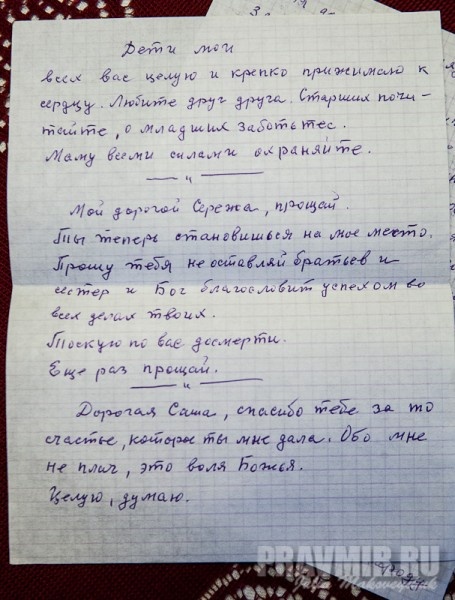 Дети мои
всех вас целую и крепко прижимаю к
сердцу. Любите друг друга. Старших почи-
тайте, о младших заботьтес.
Маму всеми силами охраняйте.
— " —
Мой дорогой Сережа, прощай.
Ты теперь становишься на мое место.
Прошу тебя не оставляй братьев и
сестер и Бог благословит успехом во
всех делах твоих.
Тоскую по вас досмерти.
Еще раз прощай.
— " —
Дорогая Саша, спасибо тебе за то
счастье, которое ты мне дала. Обо мне
не плач, это воля Божья.
Целую, думаю.
PRAVMIR.RU